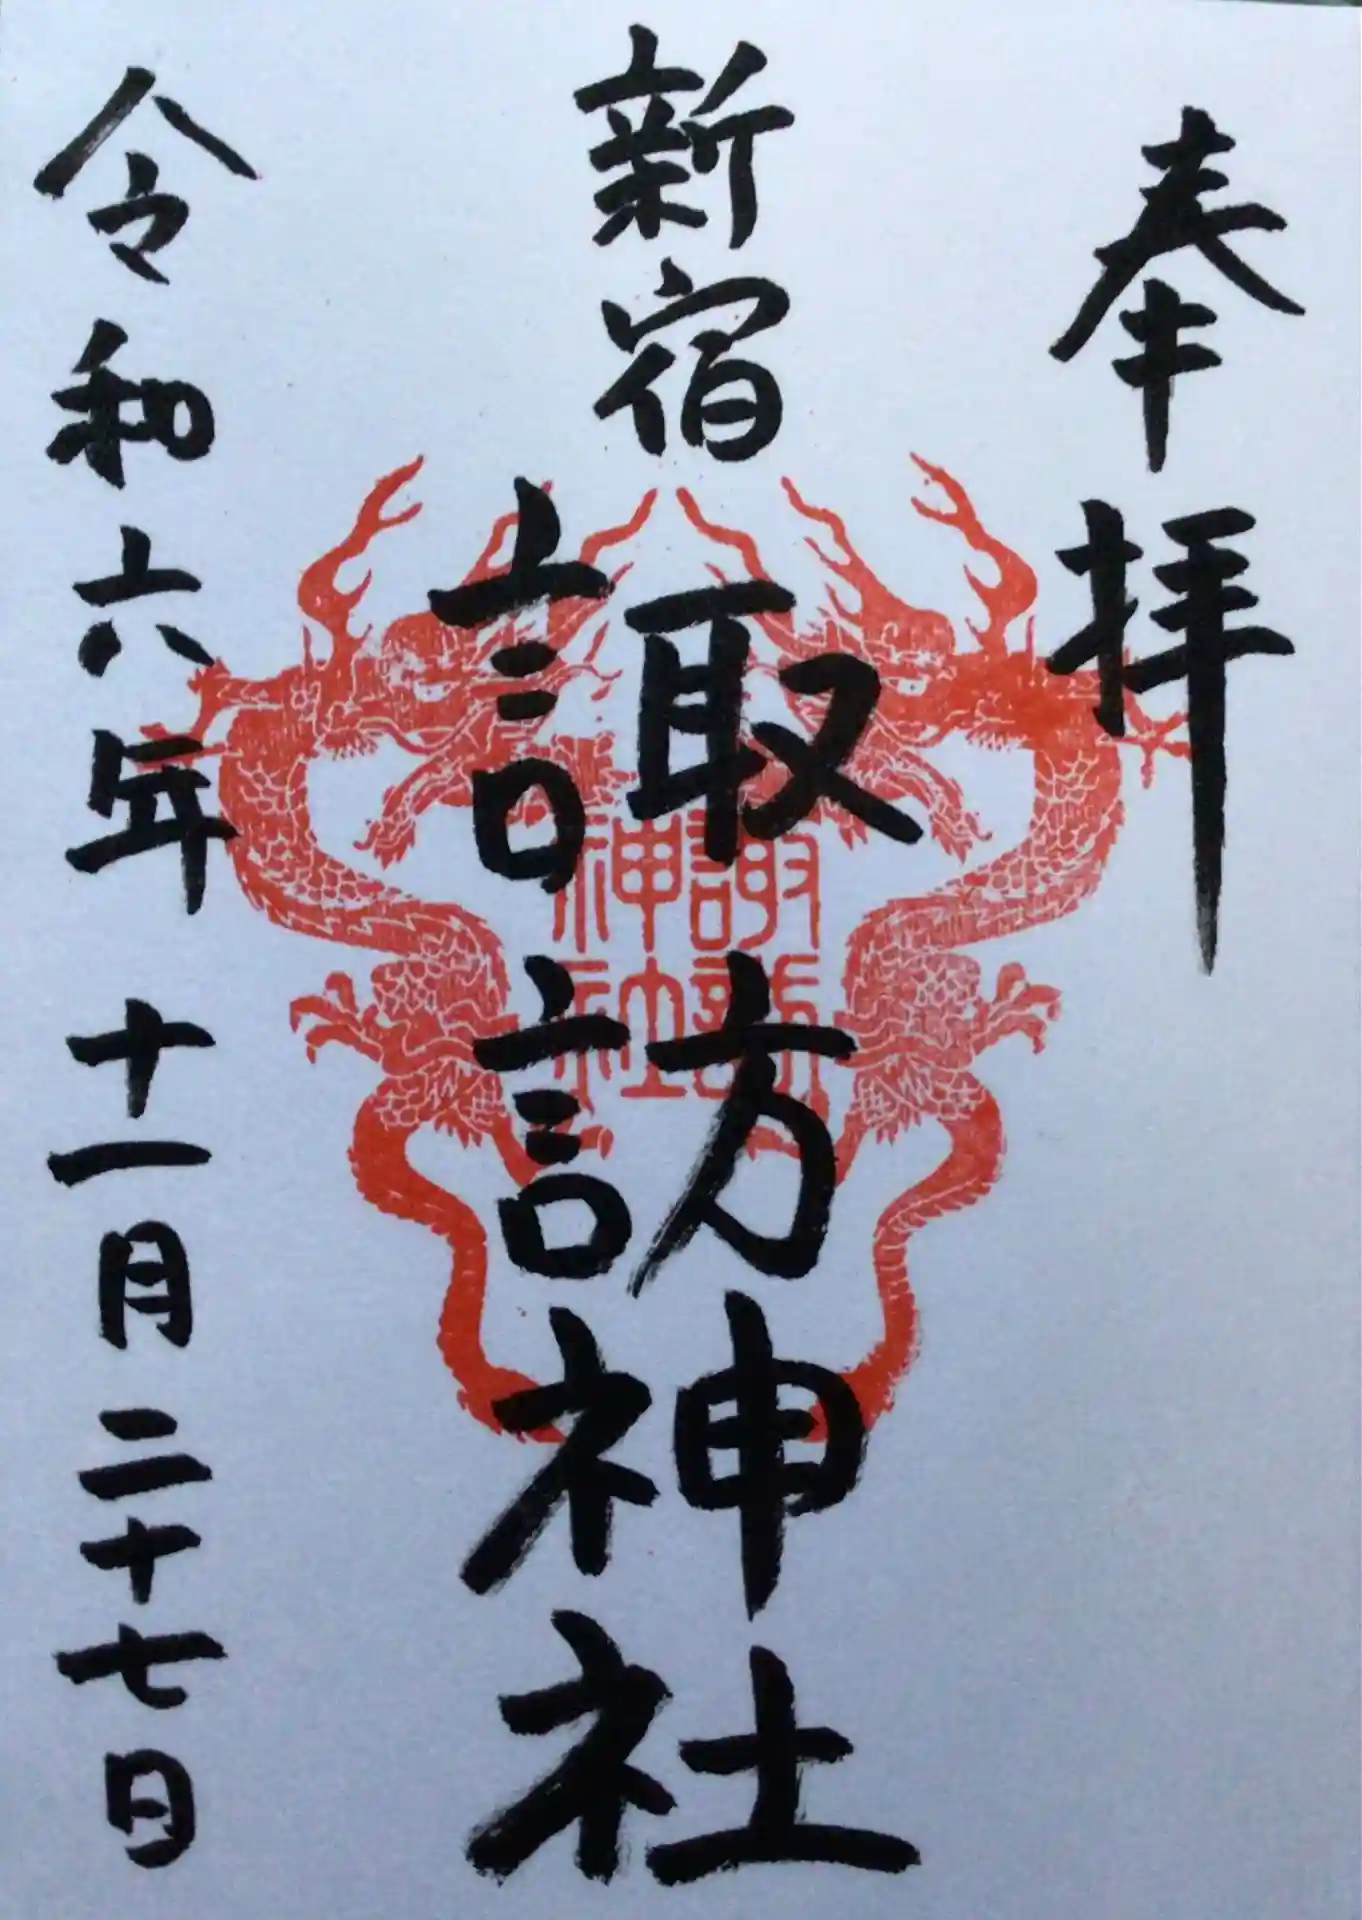 奉拝
新宿
諏訪神社
諏訪
神社
令和六年 十一月二十七日